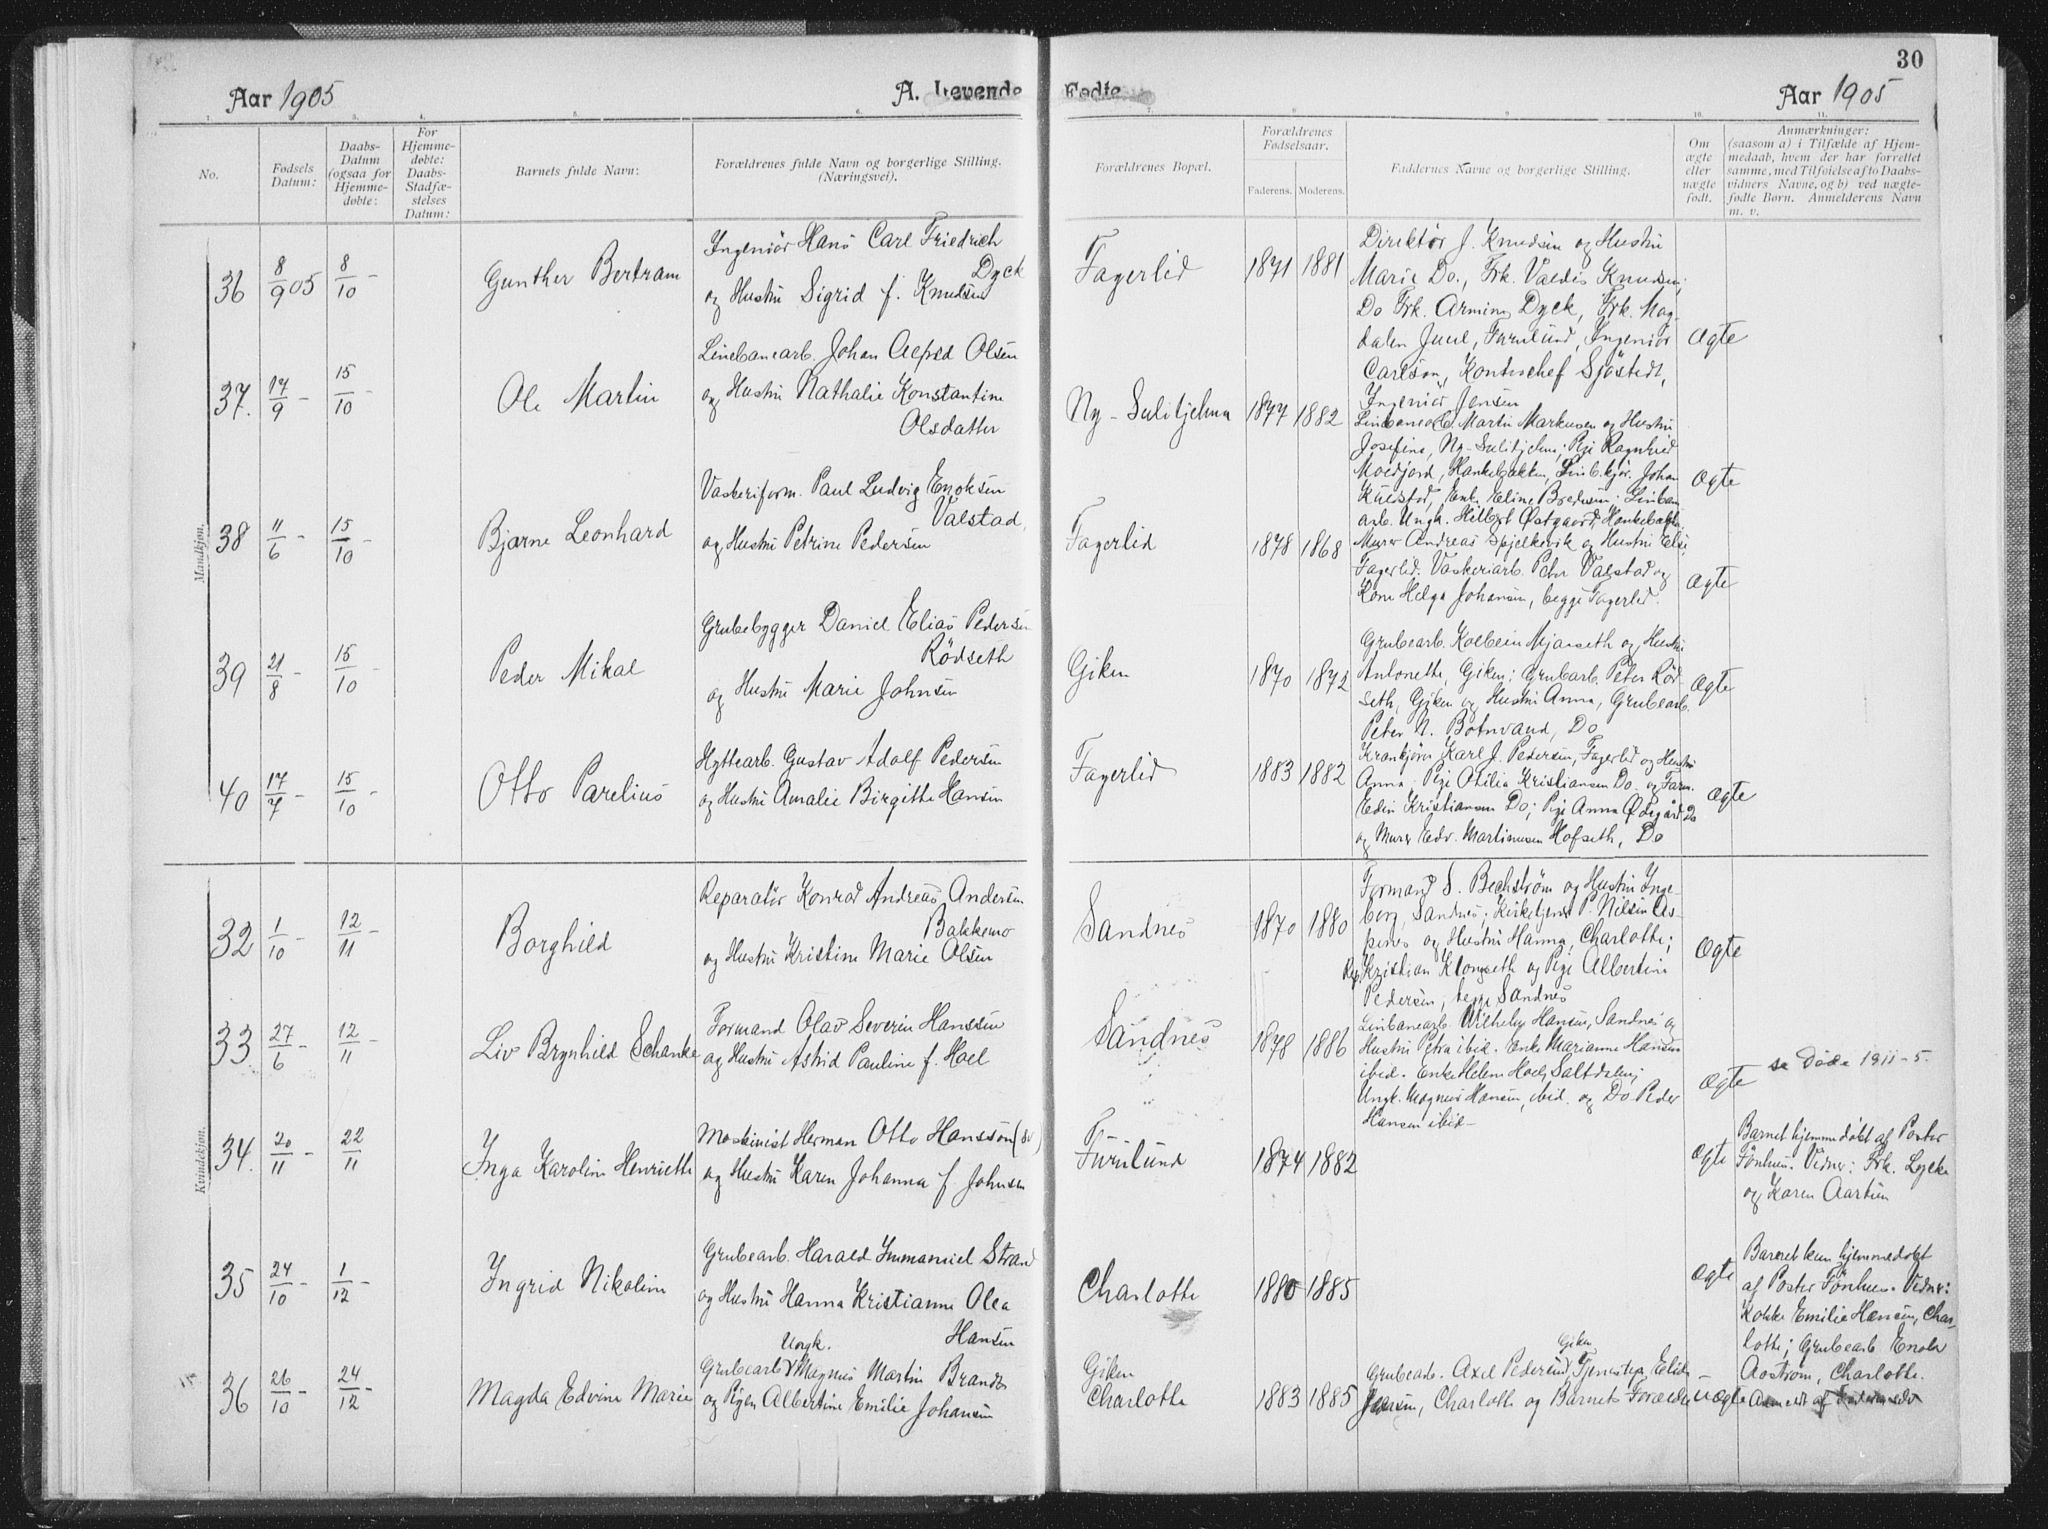 30
Aar 1905
A. Levende Fødte
Aar 1905
1. 2. 3. 4. 5. 6. 7. 8. 9. 10. 11.
No.
Fødsels Datum:
Daabs-Datum (ogsaa for Hjemme-døbte:
For Hjemme-døbte: Daabs-Stadfæ-stelses Datum:
Barnets fulde Navn:
Forældrenes fulde Navn og borgerlige Stilling. (Næringsvei).
Forældrenes Bopæl.
Forældrenes Fødselsaar.
Faderens. Moderens.
Faddernes Navne og borgerlige Stilling.
Om ægte eller uægte født.
Anmærkninger:
(saasom a) i Tilfælde af Hjem-
medaab, hvem der har forrettet
samme, med Tilføielse afto Daabs-
vidners Navne, og b) ved uægte-
fødte Børn. Anmelderens Navn
m. v.
Mandkjøn.
36 8/9 05 8/10 Gunther Bertram
Ingeniör Hans Carl Friedrich
Dyck
og Hustru Sigrid f. Knudsen
Fagerlid 1871 1881
Direktör J. Knudsen og Hustru
Marie Do., Frk. Valdis Knudsen,
Do Frk. Armine Dyck, Frk. Mag-
dalen Juul, Furulund, Ingeniör
Carlson, Kontorchef Sjöstedt,
Ingeniör Jensen
Ægte
37. 17/9 - 15/10 - Ole Martin
Linebanearb. Johan Alfred Olsen
og Hustru Nathalie Konstantine
Olsdatter
Ny-Sulitjelma 1877 1882
Linbanearb. Martin Markusen og Hustru
Josefine, Ny-Sulitjelma; Pige Ragnhild
Moedjord, Hankebakken, Linb.kjör. Johan
Kulstad, Enk. Eline Bredesen; Linban
arb. Ungk. Hilbert Østgaard, Hankebakken
Ægte
38 11/6 - 15/10 - Bjarne Leonhard
Vaskeriform. Paul Ludvig Enoksen
Valstad,
og Hustru Petrine Pedersen
Fagerlid 1878 1868
Murer Andreas Spjelkevik og Hustru Else
Fagerlid. Vaskeriarb. Peter Valstad og
Kone Helga Johansen, begge Fagerlid.
Ægte
39 21/8 - 15/10 - Peder Mikal
Grubebygger Daniel Elias Pedersen
Rödseth
og Hustru Marie Johnsen
Giken 1870 1872
Grubearb. Kolbein Mjaaseth og Hustru
Antonette, Giken; Grubearb. Peter Röd-
seth, Giken og Hustru Anna, Grubearb.
Peter N. Botnvand, Do
Ægte
40 17/7 - 15/10 - Otto Parelius
Hyttearb. Gustav Adolf Pedersen
og Hustru Amalie Birgitte Hansen
Fagerlid 1883 1882
Krankjörer Karl J. Pedersen, Fagerlid og Hustru
Anna; Pige Otilia Kristiansen Do. og Form.
Edin Kristiansen Do; Pige Anna Ødegård Do
og Murer Edv. Martinusen Hofseth, Do
Ægte
Kvindekjøn.
32 1/10 - 12/11 - Borghild
Reparatör Konrad Andreas Andersen
Bakkemo
og Hustru Kristine Marie Olsen
Sandnes 1870 1880
Formand S. Bechström og Hustru Inge-
borg, Sandnes; Kirketjener P. Nilsen As-
penes og Hustru Hanna, Charlotte;
Rep. Kristian Klongseth og Pige Albertine
Pedersen, begge Sandnes
Ægte
33 27/6 - 12/11 - Liv Brynhild Schanke
Formand Olav Severin Hanssen
og Hustru Astrid Pauline f. Hoel
Sandnes 1878 1886
Linbanearb. Wilhelm Hansen, Sandnes og
Hustru Petra ibid. Enke Marianne Hansen
ibid. Enke Helene Hoel, Saltdalen;
Ungk. Magnus Hansen, ibid. og Do Peder
Hansen ibid -
Ægte
se Döde 1911-5.
34. 20/11 - 22/11 Inga Karoline Henriette
Maskinist Herman Otto Hansson (Sv)
og Hustru Karen Johanna f. Johnsen
Furulund 1874 1882
Ægte
Barnet hjemmedöbt af Pastor
Fönhus. Vidner: Frk. Lycke
og Karen Aartun
35 24/10 - 1/12 - Ingrid Nikoline
Grubearb. Harald Immanuel Strand
og Hustru Hanna Kristianne Olea
Hansen
Charlotte 1880 1885
Ægte
Barnet kun hjemmedöbt
af Pastor Fönhus. Vidner:
Kokke Emilie Hansen, Char-
lotte; Grubearb. Enok
Aaström, Charlotte.
36 26/10 - 24/12 - Magda Edvine Marie
Ungk.
Grubearb. Magnus Martin Brandt
og Pigen Albertine Emilie Johansen
Giken
Charlotte 1883 1885
Giken
Grubearb. Axel Pedersen, Tjenestep. Elida
Jensen, Charlotte og Barnets Forældre
Uægte
Anmeldt af Faderen selv